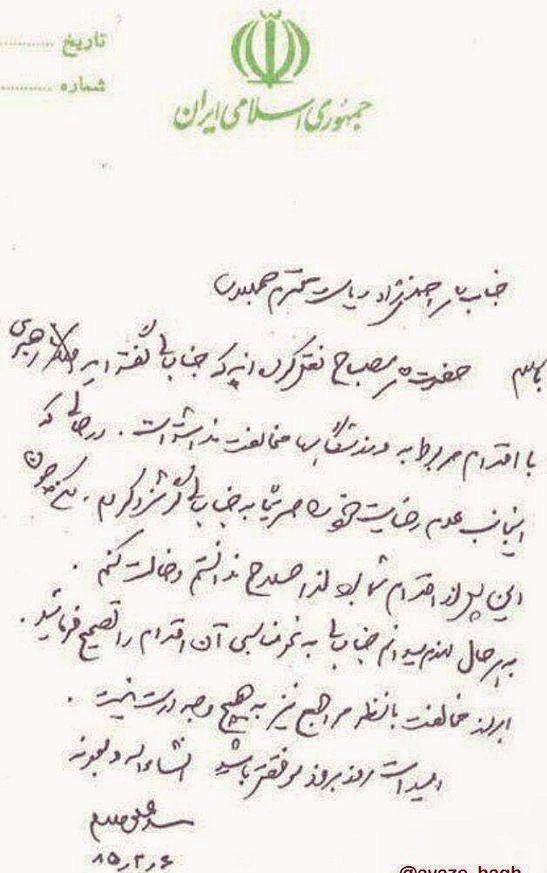 تاریخ ............
شماره ............
جمهوری اسلامی ایران
جناب آقای احمدی نژاد ریاست محترم جمهوری
با سلام حضرت آقای مصباح نقل کردند که جنابعالی گفته‌اید رهبری
با اقدام مربوط به ورزشگاهها مخالفت نداشته است . در حالی که
اینجانب عدم رضایت خود را صریحا به جنابعالی گوشزد کردم .
این پس از اقدام شما بود لذا صلاح ندانستم دخالت کنم .
به هر حال لازم میدانم جنابعالی به نحو مناسبی آن اقدام را تصحیح فرمائید .
ابراز مخالفت با نظر مراجع نیز به هیچ وجه درست نیست .
امید است روز بروز موفقتر باشید انشاءاله
سید علی
۸۵/۲/۶
@avaze_hagh